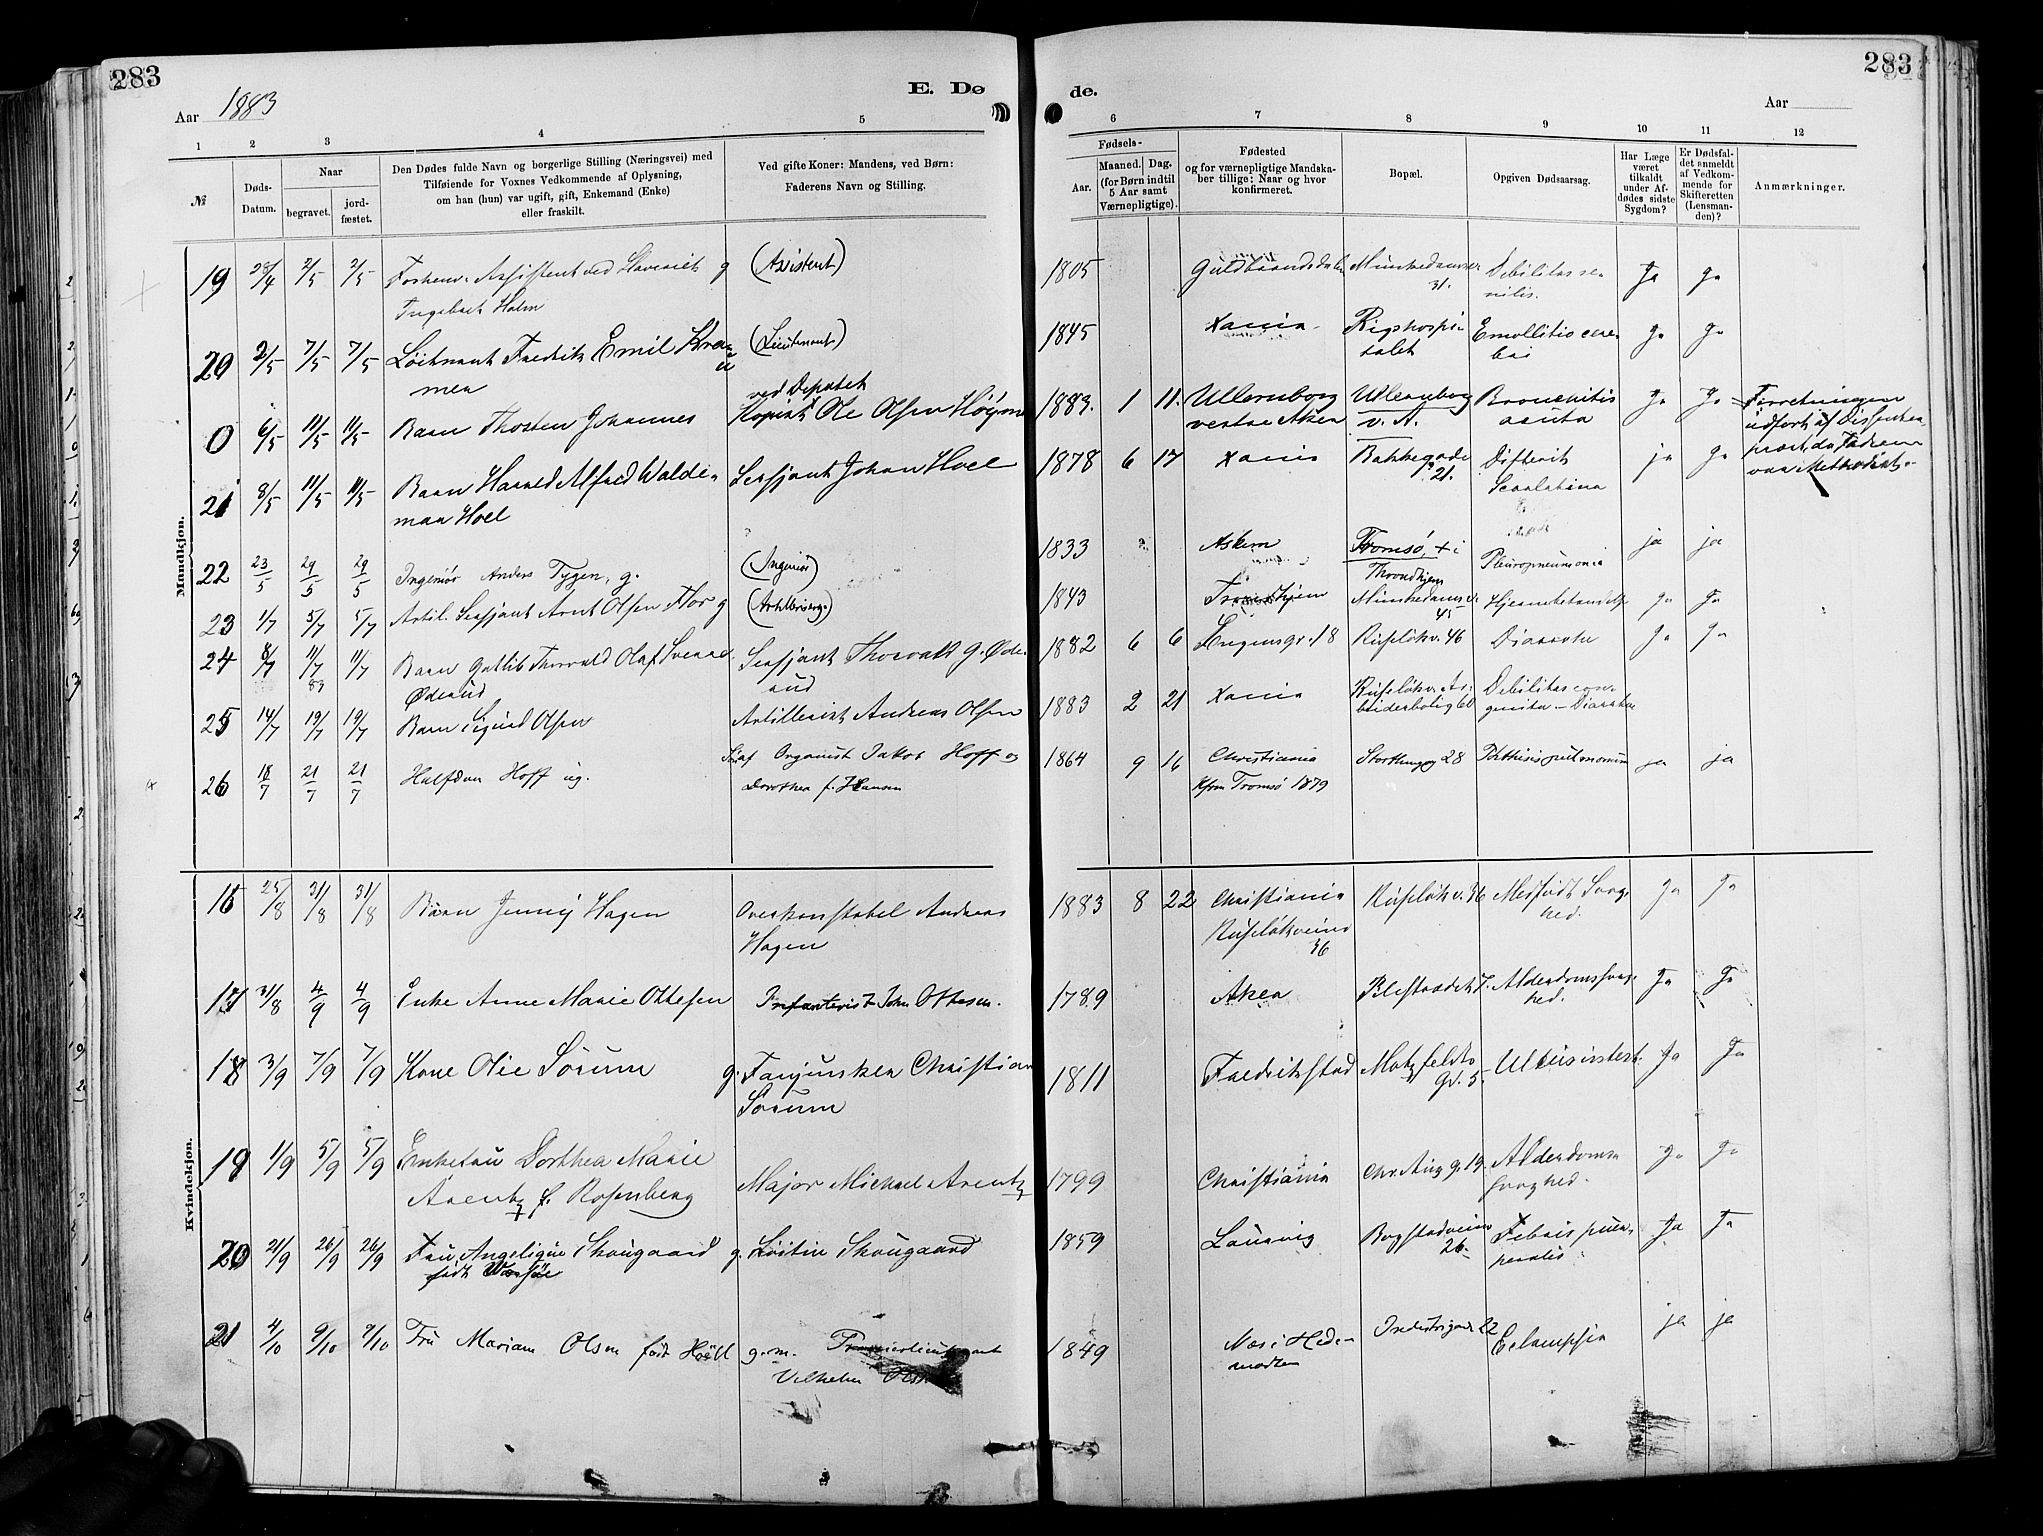 283
283
Aar 1883
E. Dø
de.
Aar
1 2 3 4 5 6 7 8 9 10 11 12
№
Døds-
Datum.
Naar
begravet.
jord-
fæstet.
Den Dødes fulde Navn og borgerlige Stilling (Næringsvei) med
Tilføiende for Voxnes Vedkommende af Oplysning,
om han (hun) var ugift, gift, Enkemand (Enke)
eller fraskilt.
Ved gifte Koner: Mandens, ved Børn:
Faderens Navn og Stilling.
Fødsels-
Aar.
Maaned.
Dag.
(for Børn indtil
5 Aar samt
Værnepligtige).
Fødested
og for værnepligtige Mandska-
ber tillige: Naar og hvor
konfirmeret.
Bopæl.
Opgiven Dødsaarsag.
Har Læge
været
tilkaldt
under Af-
dødes sidste
Sygdom?
Er Dødsfal-
det anmeldt
af Vedkom-
mende for
Skifteretten
(Lensman-
den)?
Anmærkninger.
Mandkjøn.
19 28/4 2/5 2/5 Forhenv. Assistent ved g (Assistent) 1805 Guldbrandsdalen Munkedamsv. Debilitas se- Ja ja
Ingebret Holm 31. nilis.
20 2/5 7/5 7/5 Løitnant Fredrik Emil Kra- (Lieutenant) 1845 Xania Rigshospi- Emollitio cere- Ja Ja
mer talet bri
ved Depotet
0 6/5 11/5 11/5 Barn Thosten Johannes Kopist Ole Olsen 1883. 1 11. Ullernborg Ullernborg Bronchitis Ja Ja Forretningen
vestre Aker v. A. acuta udført af Dissenter
21 8/5 11/5 11/5 Barn Harald Alfred Walde- Sersjant Johan Hoel 1878 6 17 Xania Bakkegade Difterit ja ja præst, da Faderen
mar Hoel 21. Scarlatina var Methodist.
22 23/5 29/5 29/5 Ingeniør Anders Tygen, g. (Ingeniør) 1833 Askim Tromsø, + i Pleuropneumonia ja ja
Throndhjem
23 1/7 5/7 5/7 Artil. Sersjant Arnt Olsen Flor g (Artillerserg.) 1843 Trondhjem Munkedamsv. Hjernebetændelse ja Ja
45
24 8/7 11/7 11/7 Barn Gotlib Thorvald Olaf Svenne Sersjant Thorvald G. Øde- 1882 6 6 18 Rusеløkv. 46 Diarrhe Ja Ja
83 Øderud rud
25 14/7 19/7 19/7 Barn Sigurd Olsen Artillerist Andreas Olsen 1883 2 21 Xania Ruseløkv. Ar- Debilitas con-
beiderbolig 60 genita - Diarrhe
26 18/7 21/7 21/7 Halfdan Hoff ug. Søn af Organist Jakob Hoff og 1864 9 16 Christiania Storthingsg 28 Phthisis pulmonum ja ja
Dorothea f. Hansen Kfrm Tromsø 1879
Kvindekjøn.
16 25/8 31/8 31/8 Barn Jenny Hagen Overkonstabel Andreas 1883 8 22 Christiania Ruseløkv. 36 Medfødt Svag- Ja Ja
Hagen Ruseløkveien hed.
36
17 31/8 4/9 4/9 Enke Anne Marie Ottesen Infanterist John Ottesen. 1789 Aker Pilestrædet 7. Alderdomssvag- Ja Ja
hed.
18 3/9 7/9 7/9 Kone Olie Sørum g. Fanjunker Christian 1811 Fredrikstad Motzfeldts Ja Ja
Sørum gd. 5
19 1/9 5/9 5/9 Enkefru Dorthea Marie Major Michael Arentz 1799 Christiania Chr. Aug. g. 19 Alderdoms Ja Ja
Arentz f. Rosenberg svaghed.
20 21/9 26/9 26/9 Fru Angelique Skougaard g. Løitn Skougaard 1859 Laurvig Bogstadveien Febris puer- Ja Ja
født 26. peralis
21 4/10 9/10 9/10 Fru Mariam Olsen født g. m. Premierlieutenant 1849 Næs i Hede- Industrigaden 22 Eclampsia ja ja
Vilhelm Olsen marken